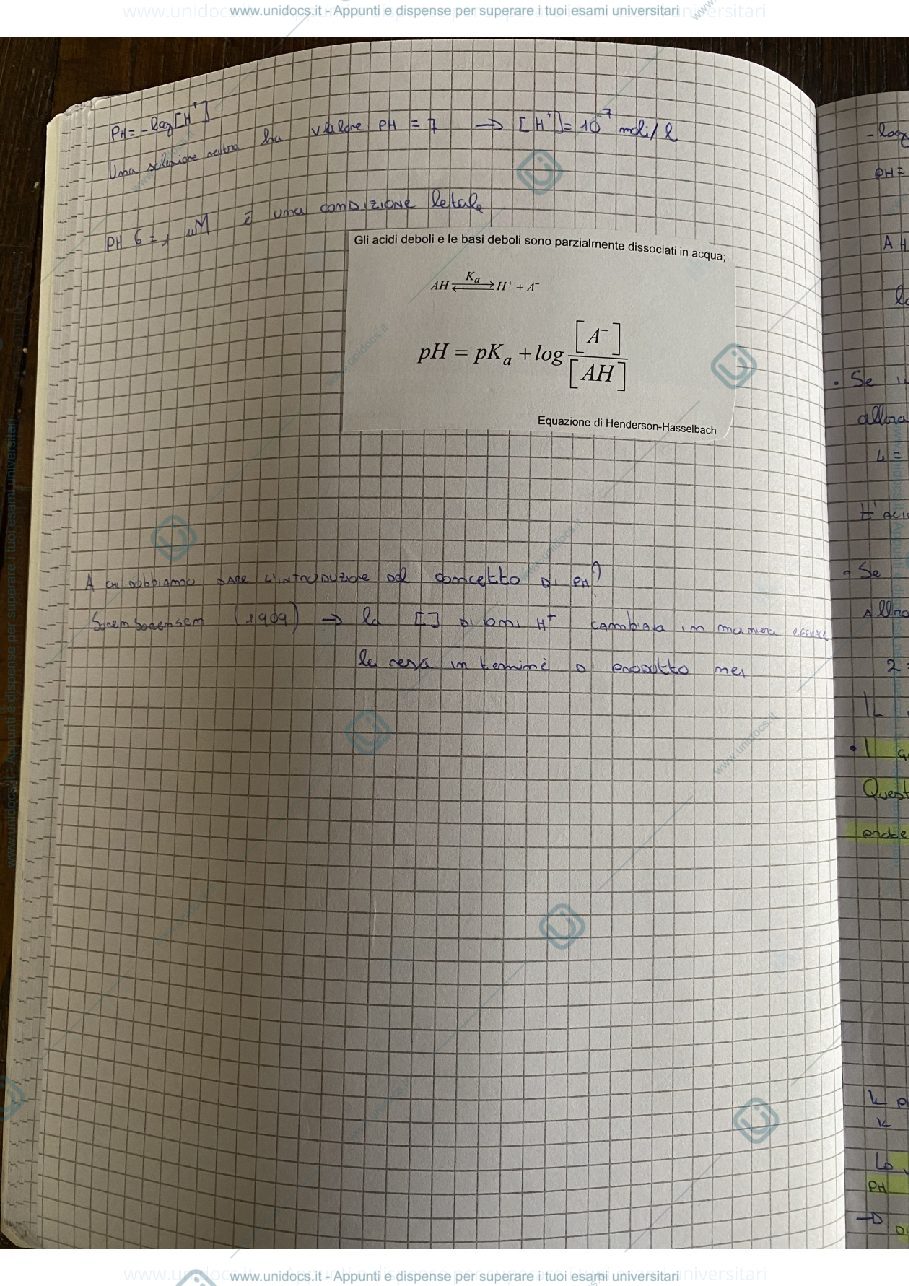 www.unidocs.it - Appunti e dispense per superare i tuoi esami universitari
PH = -log[H⁺]
Una soluzione neutra ha valore PH = 7 → [H⁺] = 10⁻⁷ mol/l
PH 6 = 1 μM è una condizione letale
Gli acidi deboli e le basi deboli sono parzialmente dissociati in acqua;
AH ⇌ H⁺ + A⁻
Kₐ
pH = pKₐ + log [A⁻] / [AH]
Equazione di Henderson-Hasselbach
A chi dobbiamo dare l'introduzione del concetto di PH?
(1909) → la [] di ioni H⁺ cambiala in maniera
le resa in termini di prodotto
-log
PH =
AH
• Se
allora
4 =
• Se
Allora
2 =
IL
• I
Quest
PH
→
www.unidocs.it - Appunti e dispense per superare i tuoi esami universitari